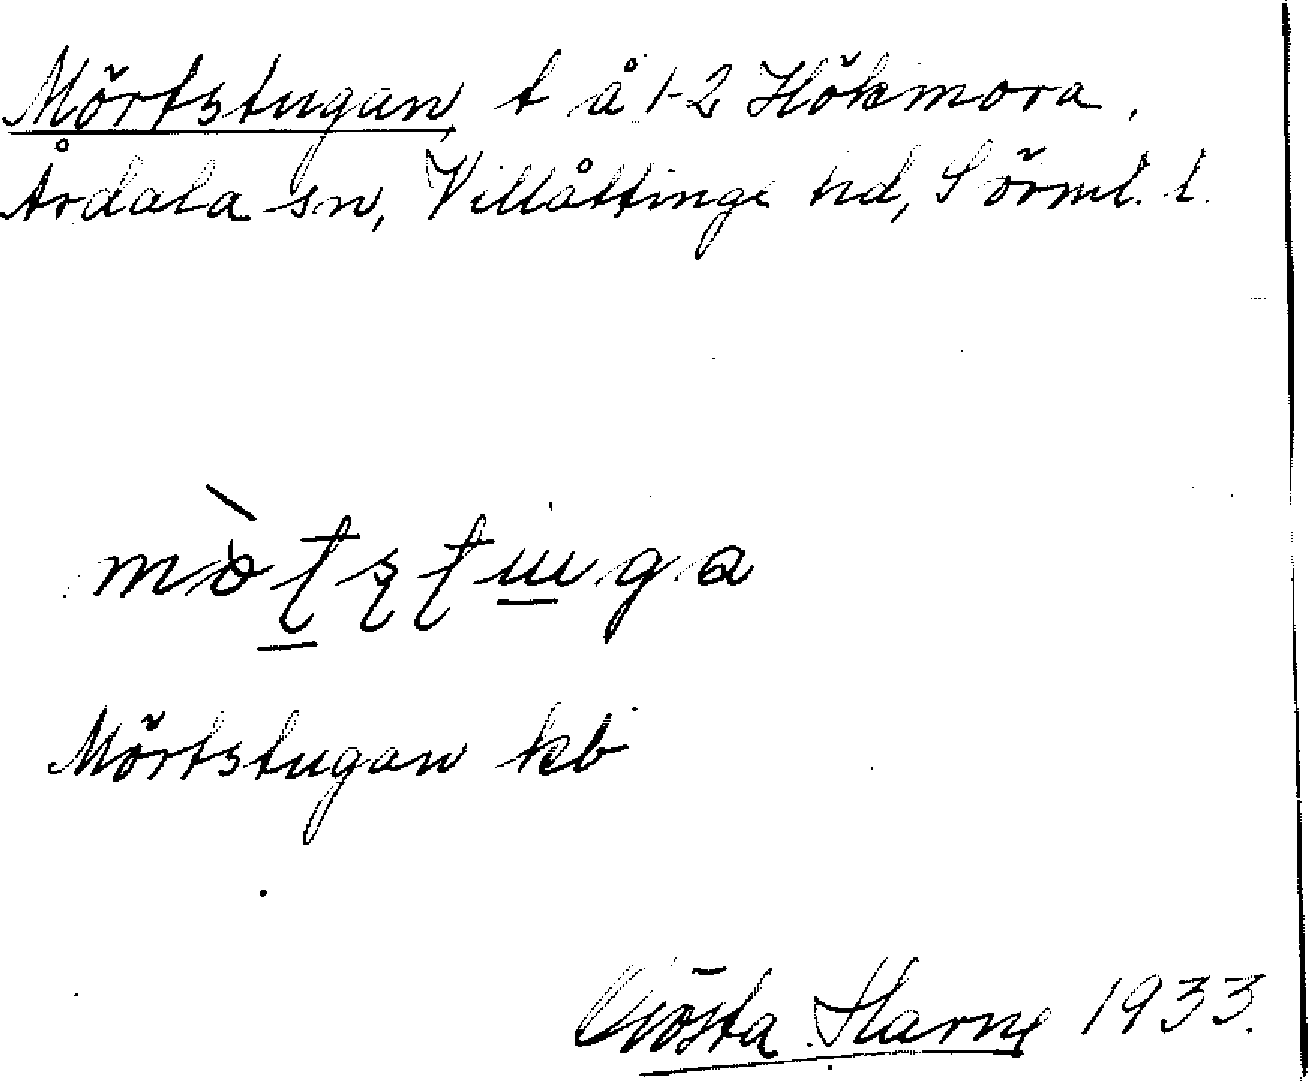 Mörtstugan, t å 1-2 Hökmora,
Årdala sn, Villåttinge hd, Sörml. l.
Mörtstugan kb
Gösta Harne 1933.